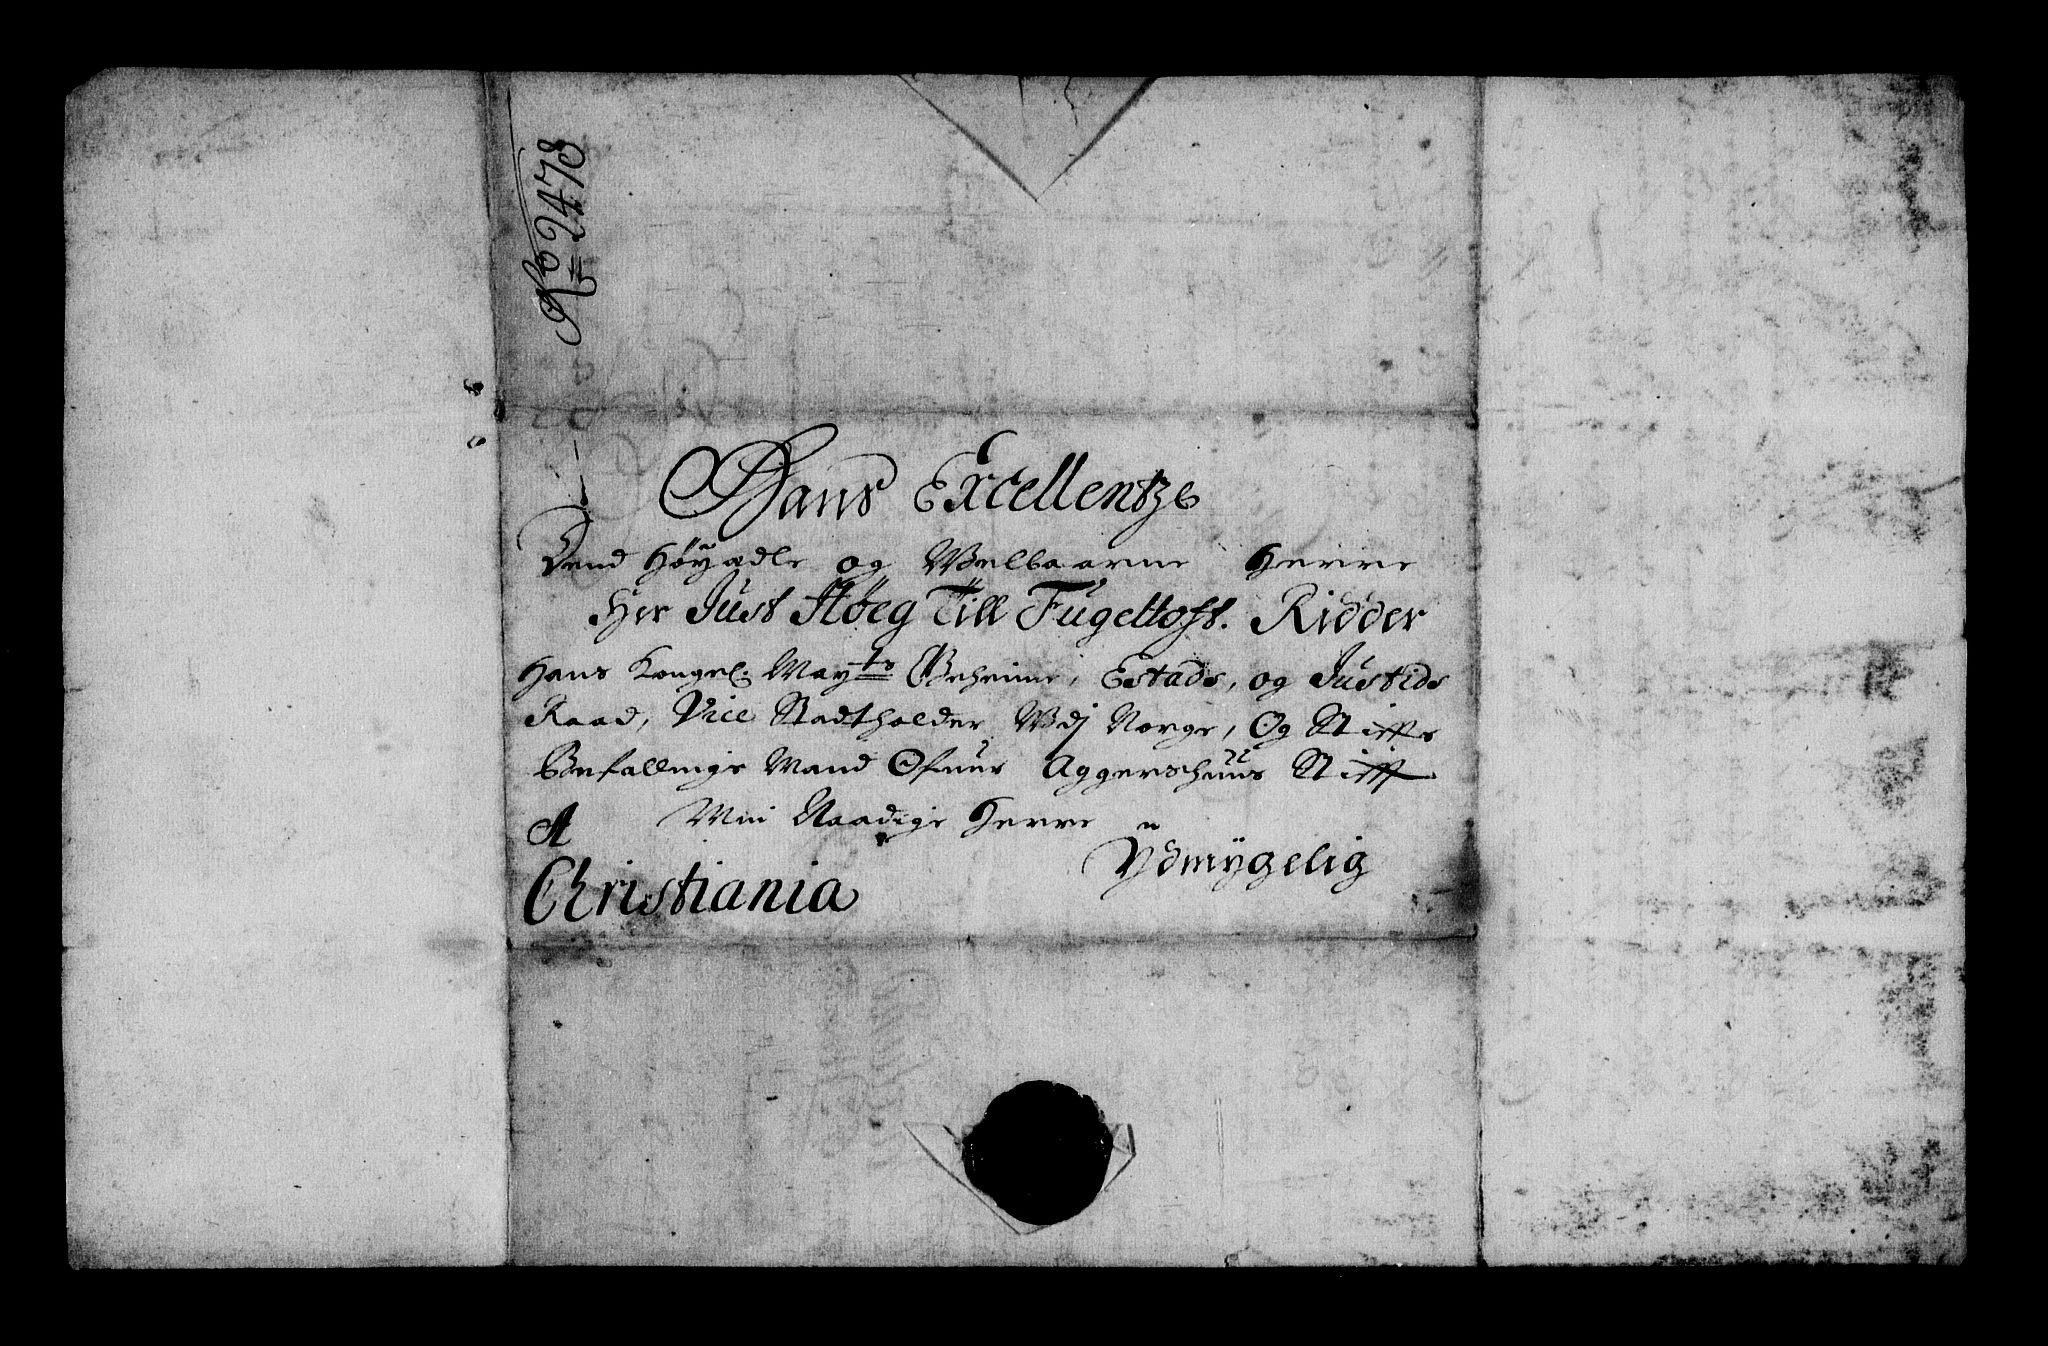 No 2478
Hans Excellentze
Dend Høyædle og Welbaarne Herre
Her Just Høeg Till Fugeltofft. Ridder
Hans Kongel: Mayts Geheime, Estads, og Justids
Raad, Vice Stadtholder Udj Norge, Og Stiffts
Befallings Mand Ofuer Aggershuus Stifft
Min Naadige Herre
A
Christiania
Ydmygelig